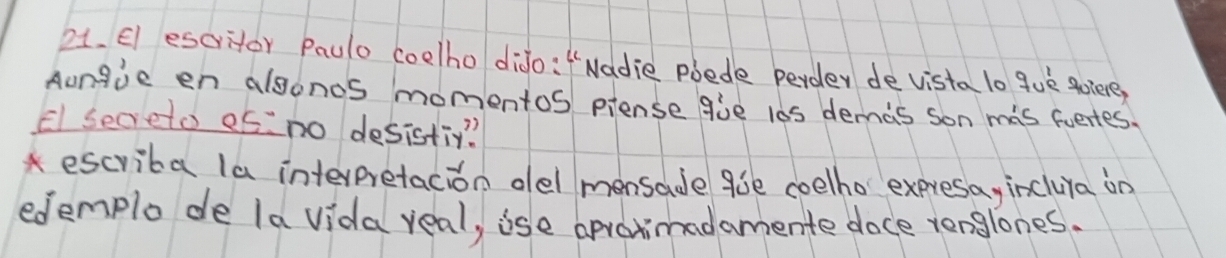 21. El escritor Paulo coelho dijo: "Nadie puede perder de vista lo que quiere,
Aunque en algunos momentos piense que los demás son más fuertes.
El secreto es: no desistir."
* escriba la interpretación del mensaje que coelho expresa, incluya un
ejemplo de la vida real, use aproximadamente doce renglones.